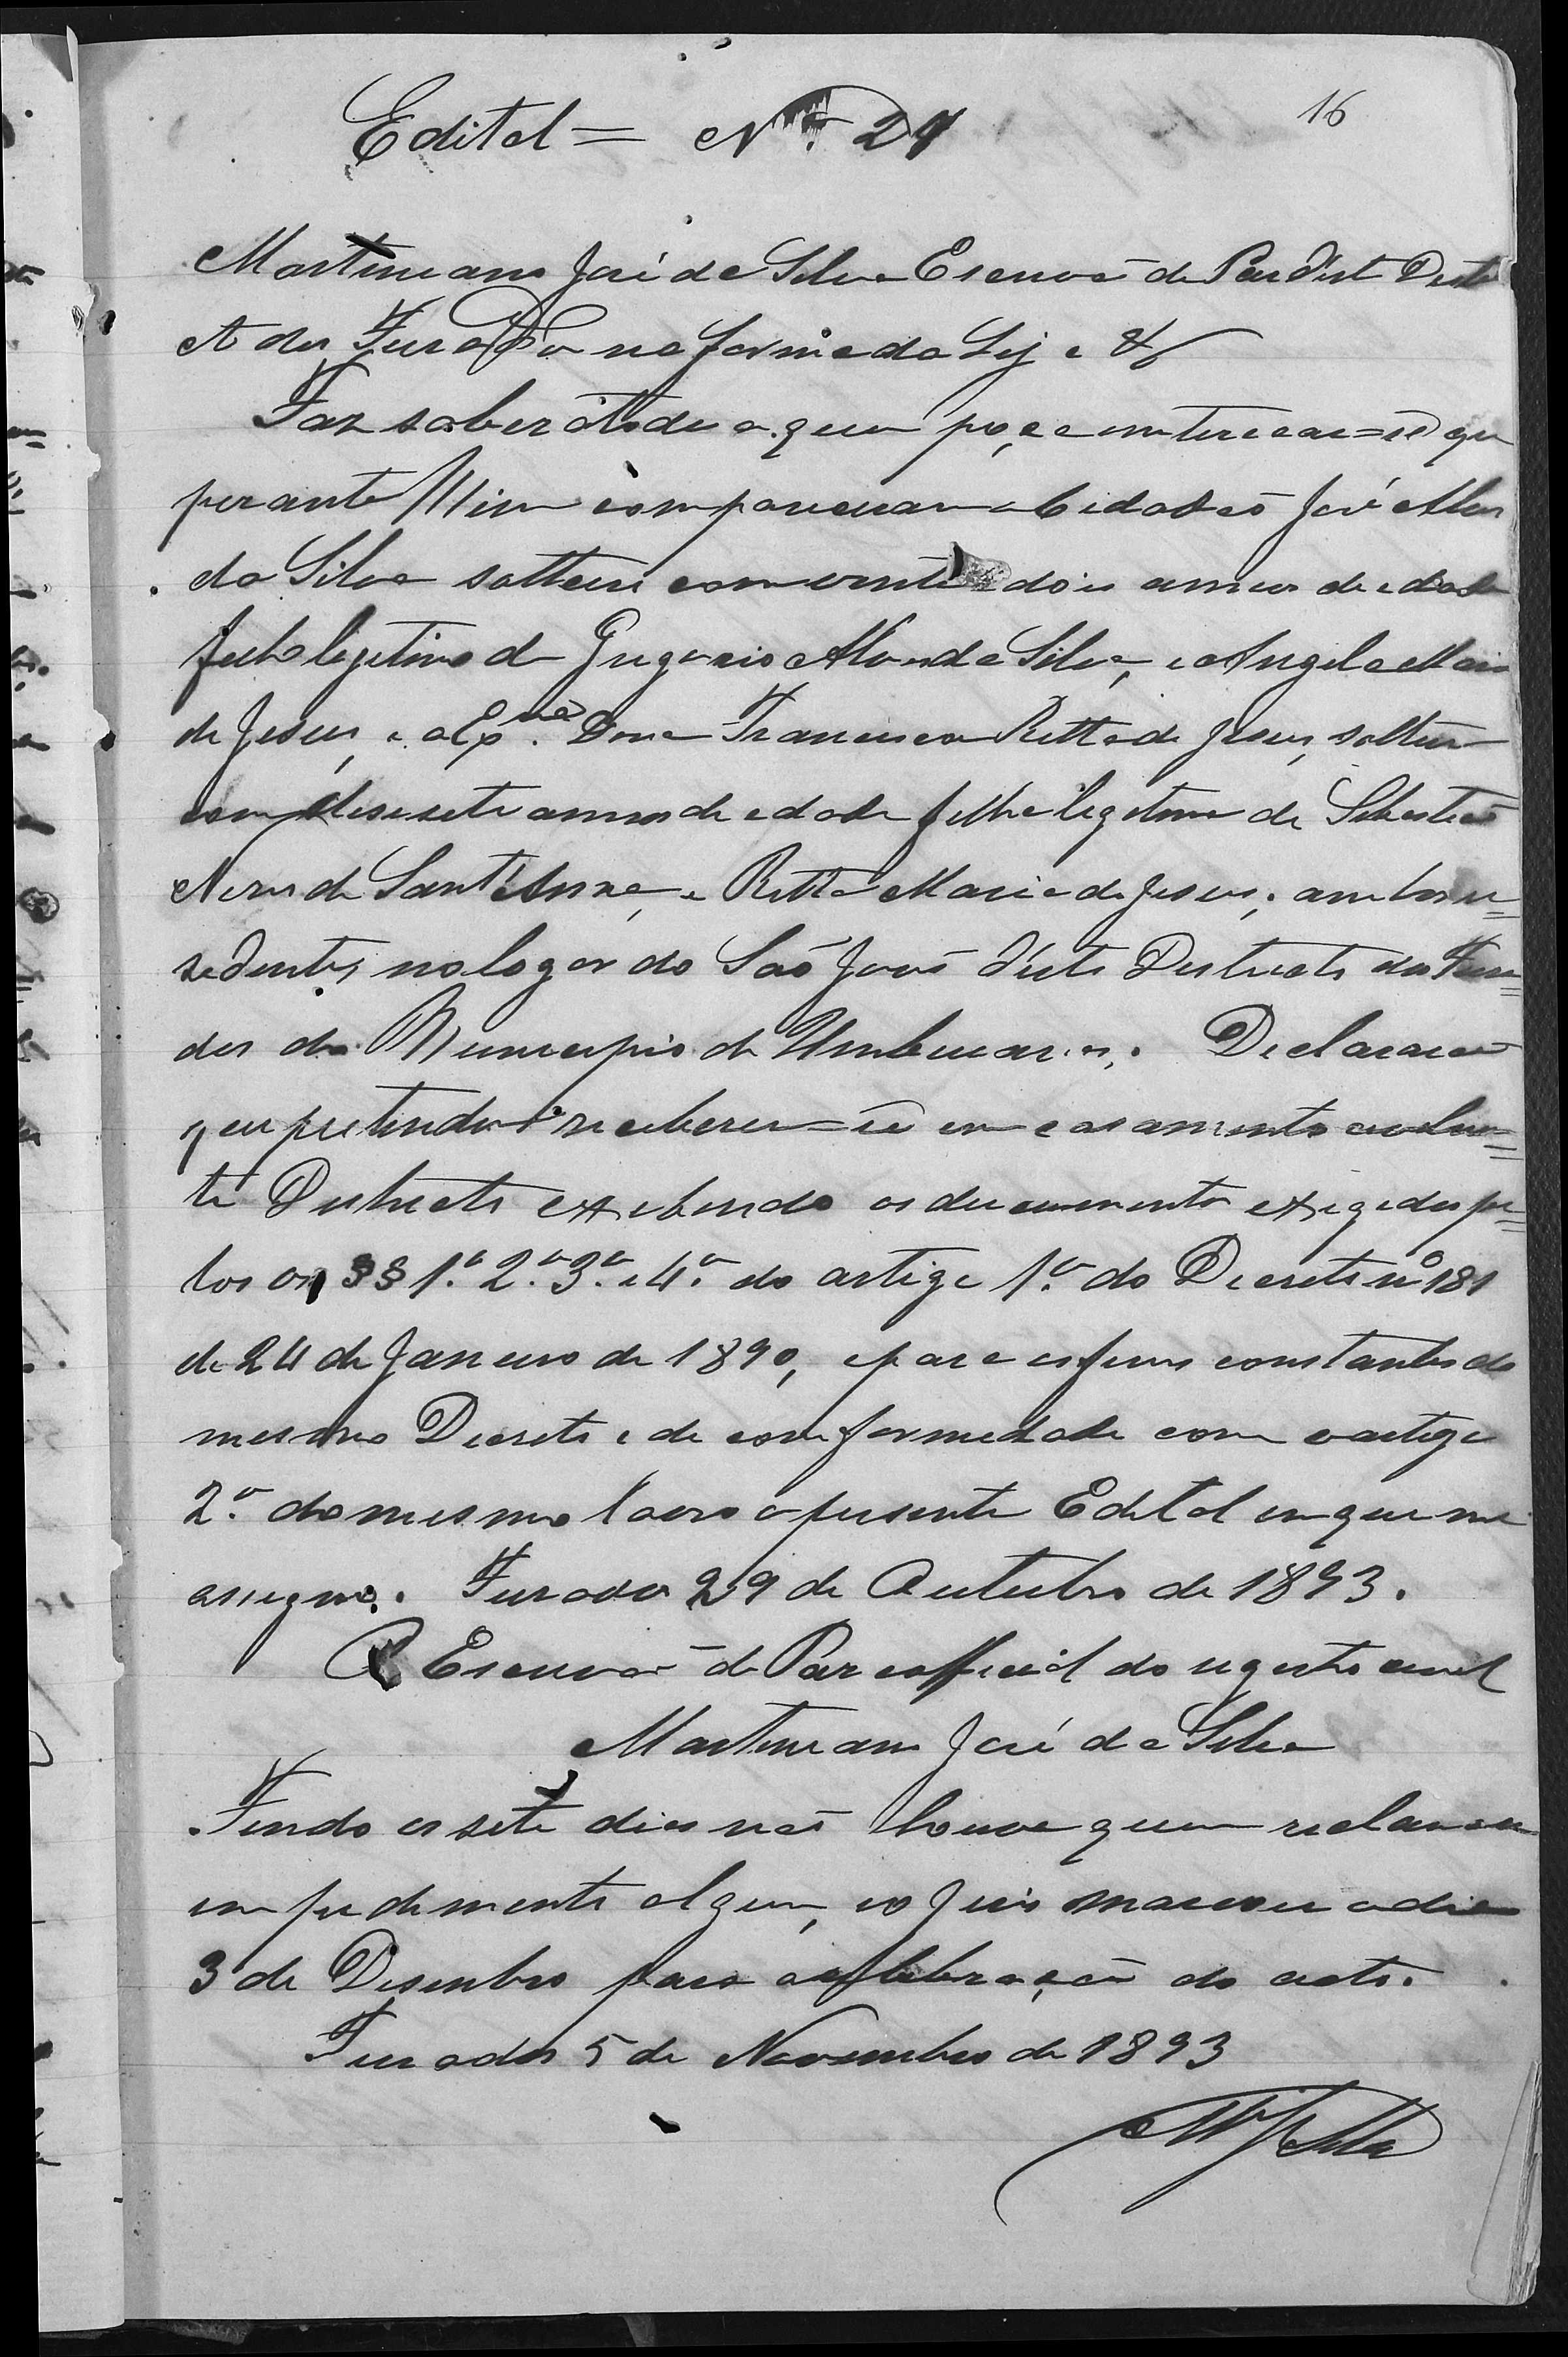 16
Edital = Nº 29
Martiniano José da Silva Escrivão de Paz d'est Destri
cto dos Furados na forma da Lej e &
Faz saber á todos a quem poça enterecar-se que
perante Mim compareceram o Cidadão José Alves
da Silva solteiro com vinte e dois annos de edade
filho legitimo de Gregorio Alves da Silva, e Angela Maria
de Jesus, e a Exmª. Dona Francisca Ritta de Jesus, solteira
com desesete annos de edade filha legitima de Sebastião
Neves de Sant'Anna, e Ritta Maria de Jesus; ambos re=
sedentes no logar do São João d'este Destricto dos Fura=
dos do Municipio de Umburanas. Declararão
que pretendem receberem-se em casamento civil nes=
te Destricto exebindo os documentos exigedos pe=
los os §§ 1º. 2º. 3º. e 4º. do artigo 1º. do Decreto nº 181
de 24 de Janeiro de 1890, e para os fins constantes do
mesmo Decreto e de comformedade com o artigo
2º. do mesmo lavro o presente Edital em que me
assigno. Furados 29 de Outubro de 1893.
O Escrivão de Paz e official do regestro civil
Martiniano José da Silva
Findo os sete dias não houve quem reclamasse
empedimento algum, e o Juis marcou o dia
3 de Desembro para a celebração do acto.
Furados 5 de Novembro de 1893
MJSilva